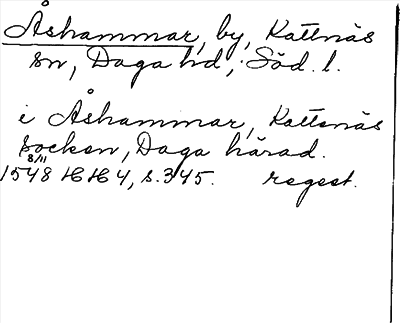 Åshammar, by, Kattnäs
sn, Daga hd, Söd. l.
i Åshammar, Kattnäs
socken, Daga härad.
1548 8/11 HH 4, s. 345. regest.